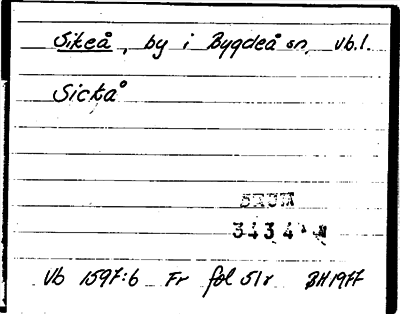 Sikeå, by i Bygdeå sn, Vb. l.
Sickå
3434
Vb 1597:6 Fr fol 51r BH 1977